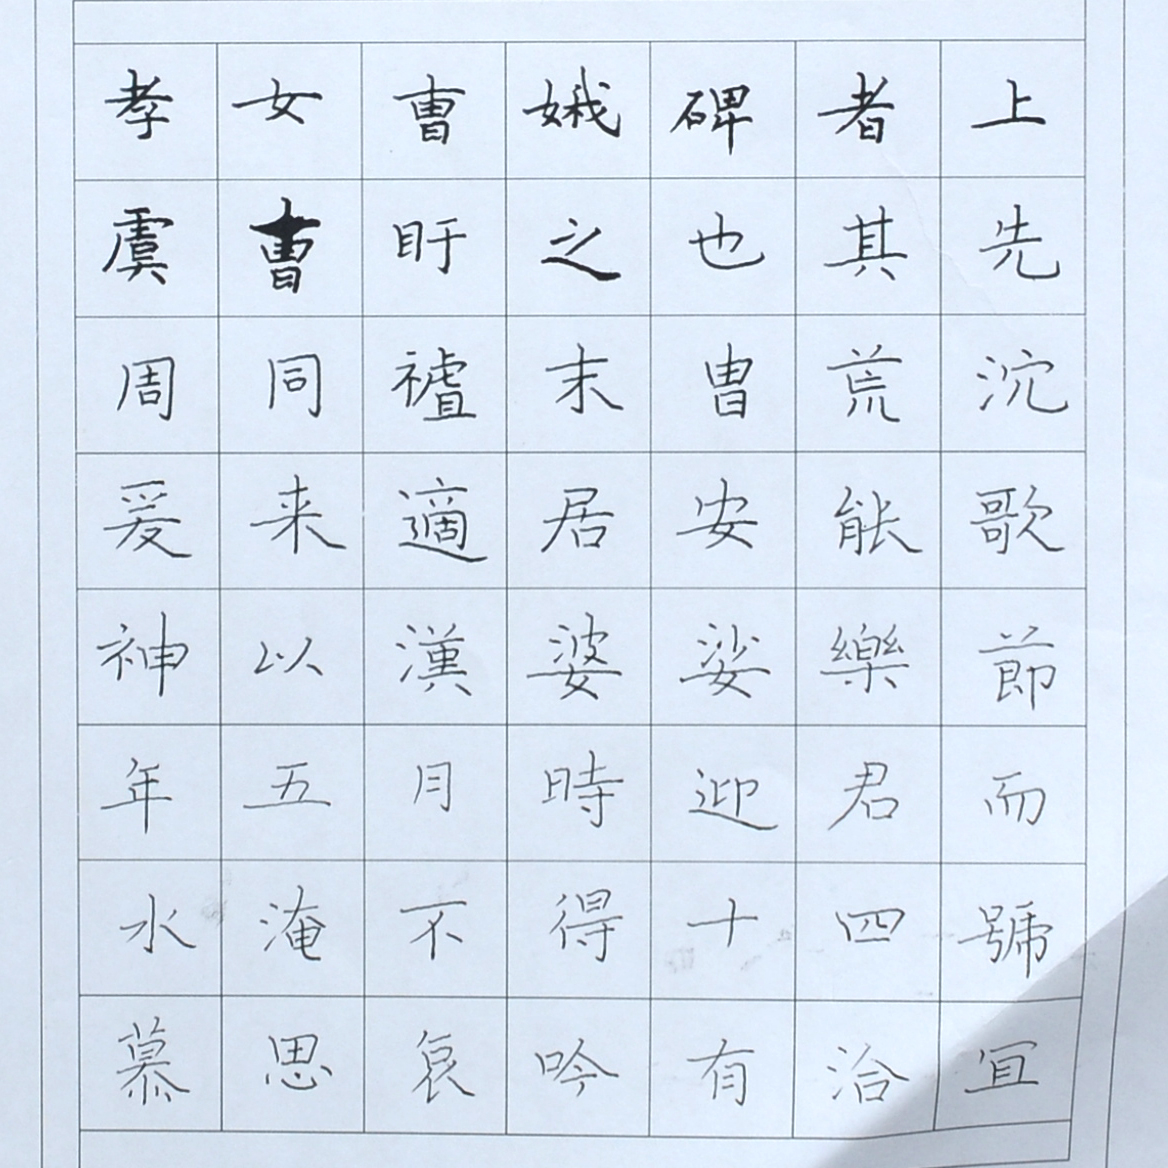 孝女曹娥碑者上
虞曹盱之也其先
周同末胄荒沉
爰来適居安能歌
神以漢婆娑樂節
年五月時迎君而
水淹不得十四號
慕思哀吟有洽冝